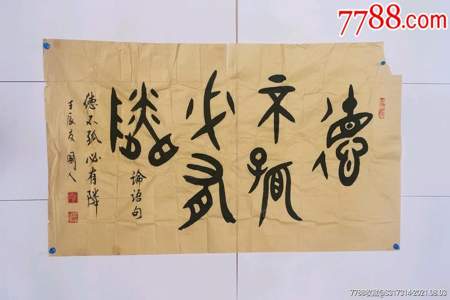 7788.com
德
不孤
必有
隣
論语句
德不孤必有隣
壬辰友國人
7788收藏@S317314-2021.08.03